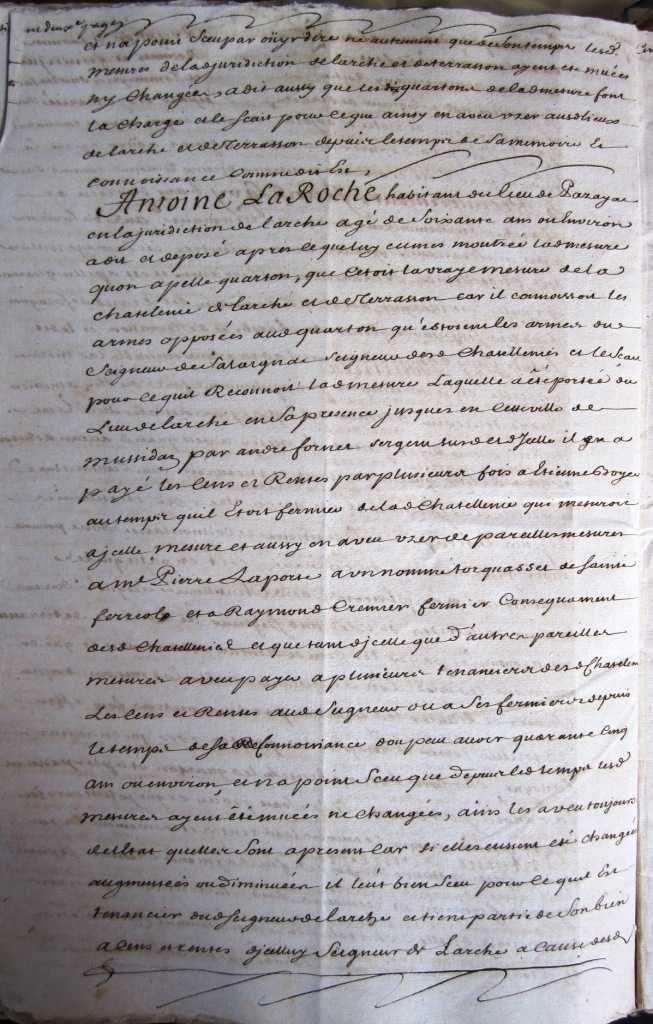 et n'a point sceu par ouyr dire ne autrement que de son temps lesd
mesures de la juridiction de larche et de terrasson ayent esté muées
ny changées, a dit aussy que les dix quartons de lad mesure font
la charge et le scait pour ce que ainsy en a veu vzer aud lieux
de larche et de Terrasson depuis le temps de sa memoire et
connoissance comme dit est,
Antoine LaRoche habitant du lieu de Pazayac
en la juridiction de larche agé de soixante ans ou environ
a dit et deposé apres ce que luy eumes montrée lad mesure
quon apelle quarton, que cetoit la vraye mesure de la
chatelenie de larche et de Terrasson car il connoissoit les
armes opposées aud quarton qu'estoient les armes du
seigneur de Salaignac seigneur desd Chatellenies et le scait
pour ce quil Reconnoit lad mesure Laquelle a été portée du
Lieu de larche en sa presence jusques en cette ville de
mussidan par andre fornet sergent et d'jcelle il en a
payé les Cens et Rentes par plusieurs fois a Etienne
au temps quil Etoit fermier de lad Chatellenie qui mesuroit
a jcelle mesure et aussy en a veu vzer de pareilles mesures
a me Pierre Laporte a vn nommé torquasset de sainte
ferreole et a Raymond Cremier fermier Consequament
desd Chatellenies et que tant d'jcelle que d'autres pareilles
mesures a veu payer a plusieurs tenanciers desd Chatellenies
Les Cens et Rentes aud Seigneur ou a ses fermiers depuis
le temps de sa Reconnoissance dou peut avoir quarante Cinq
ans ou environ, et n'a point sceu que depuis led temps lesd
mesures ayent été muées ne changées, ains les a veu toujours
de l'Etat quelles sont apresent car si elles eussent été changées
augmentées ou diminuées il leut bien sceu pour ce quil Est
tenancier dud seigneur de larche et tient partie de son bien
a Cens et rentes d'jcelluy Seigneur de Larche a Cause desd